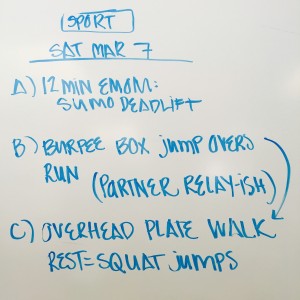 SPORT
SAT MAR 7
A) 12 MIN EMOM:
SUMO DEADLIFT
B) BURPEE BOX JUMP OVERS
RUN
(PARTNER RELAY-ISH)
C) OVERHEAD PLATE WALK
REST=SQUAT JUMPS